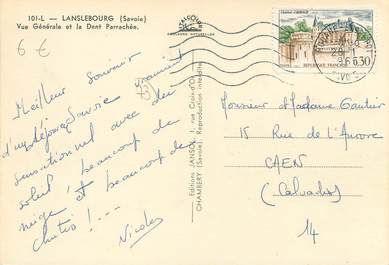 101-L — LANSLEBOURG (Savoie)
Vue Générale et la Dent Parrachée.
6 €
73
Meilleur souvenir
d'un séjour Savoie vraiment
sensationnel avec du
soleil, beaucoup de
neige et beaucoup de
chutes ! ---
Nicolas
Editions JANSOL, 1, rue Croix-d'Or
CHAMBERY (Savoie). Reproduction interdite
COULEURS NATURELLES
Château d'AMBOISE
POSTES RÉPUBLIQUE FRANÇAISE 0,30
Monsieur et Madame Gautier
15 Rue de l'Aurore
CAEN
(Calvados)
14